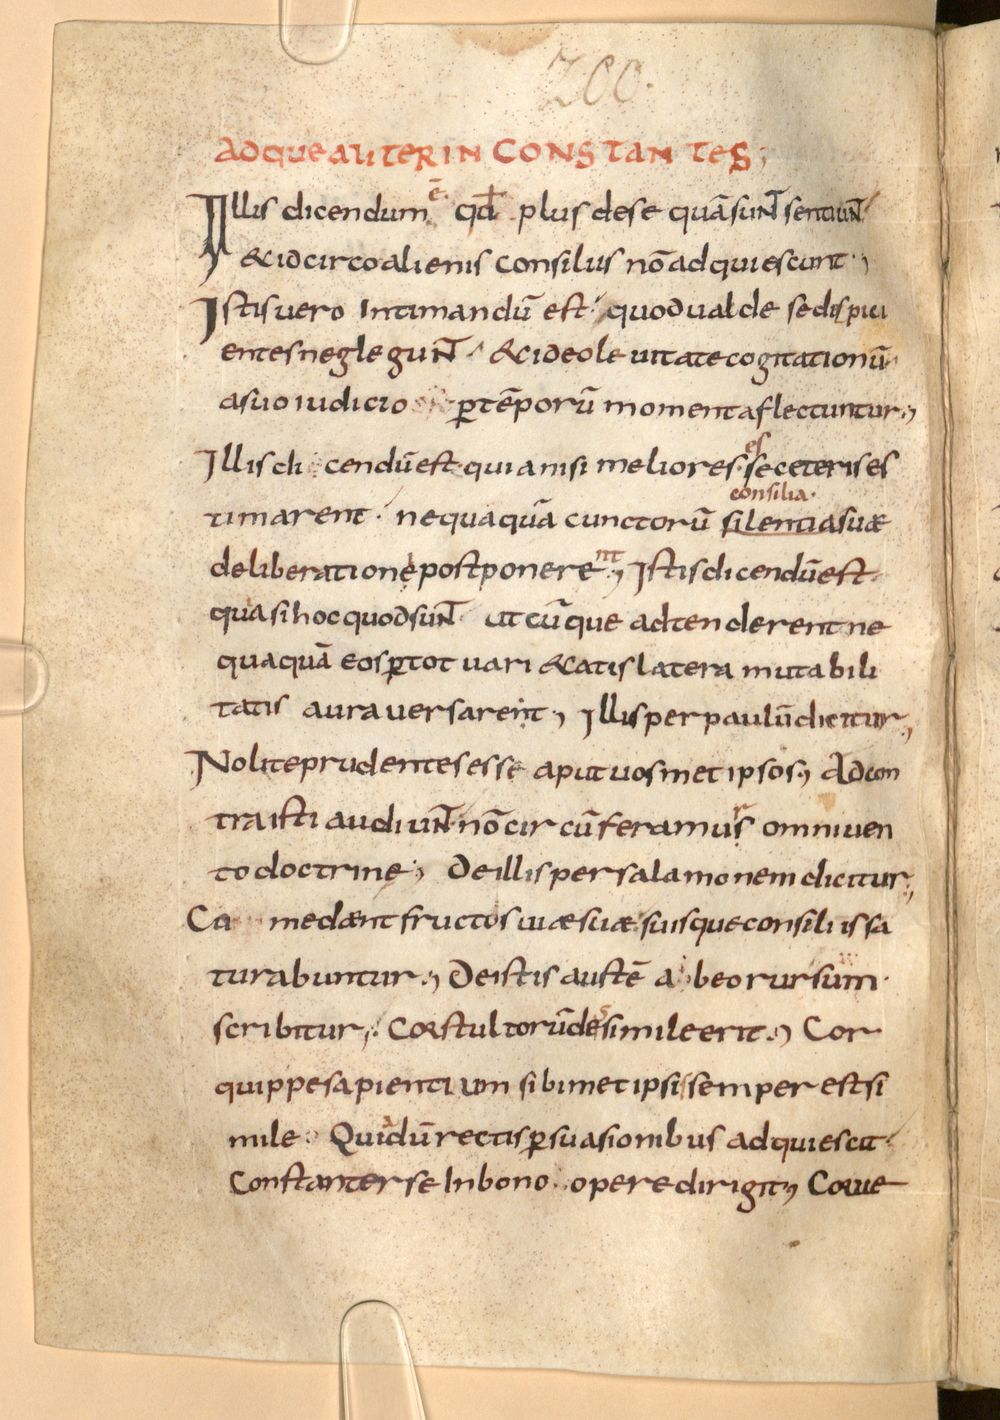 200.
ADQUE ALITER INCONSTANTES;
Illis dicendum ē. qđ plus de se quā suNT sentiuNT
& idcirco alienis consiliis nō adquiescunt;
Istis vero Intimandū est. quod valde se dispici
entes neglegunT. & ideo levitate cogitationū
a suo iudicio ꝑ tēporū momenta flectuntur;
Illis di cendū est. quia nisi meliores se ceteris es
es
timarent. nequaquā cunctorū silentia suæ
consilia.
deliberatione postponere; Istis dicendū est
nt
quasi hoc quod sunT utcūque adtenderent ne
quaquā eos ꝑ tot vari &atis latera mutabili
tatis aura versarent; Illis per paulū dicitur;
Nolite prudentes esse aput vosmet ipsos; Ad con
tra isti audiunT. nō circūferamur omni ven
to doctrine; De illis per salamonem dicitur;
Co medænt fructos viæ suæ suisque consiliis sa
turabuntur; De istis autē ab eo rursum
scribitur; Cor stultorū desimile erit; Cor
s
quippe sapientium sibimet ipsi semper est si
mile Quia dū rectis ꝑsuasionibus adquiescit
Constanter se In bono opere dirigit; Cor ve